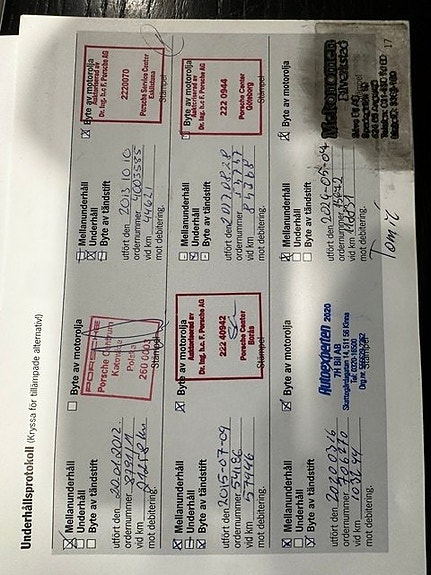 Underhållsprotokoll (Kryssa för tillämpade alternativ!)
Mellanunderhåll
Underhåll
Byte av tändstift
Byte av motorolja
utfört den 20.04.2012.
ordernummer
vid km
mot debitering.
PORSCHE
Porsche Centrum
260 0003
Stämpel
Mellanunderhåll
Underhåll
Byte av tändstift
Byte av motorolja
utfört den 2013 10 10
ordernummer 4003585
vid km 44621
mot debitering.
Auktoriserad av
Dr. Ing. h.c F. Porsche AG
2220070
Porsche Service Center
Eskilstuna
Stämpel
Mellanunderhåll
Underhåll
Byte av tändstift
Byte av motorolja
utfört den 2015-07-09
ordernummer 54186
vid km 57446
mot debitering.
Auktoriserad av
Dr. Ing. h.c F. Porsche AG
222 40942
Porsche Center
Borås
Stämpel
Mellanunderhåll
Underhåll
Byte av tändstift
Byte av motorolja
utfört den 2017.08.28
ordernummer
vid km
mot debitering.
Auktoriserad av
Dr. Ing. h.c F. Porsche AG
222 0944
Porsche Center
Göteborg
Stämpel
Mellanunderhåll
Underhåll
Byte av tändstift
Byte av motorolja
utfört den 20200316
ordernummer 706210
vid km 103644
mot debitering.
Autoexperten 2020
7H Bil AB
511 56 Kinna
Tel: 0320-16500
Stämpel
Mellanunderhåll
Underhåll
Byte av tändstift
Byte av motorolja
utfört den 2024-05-04
ordernummer
vid km
mot debitering.
Mekonomen
17
Tomić